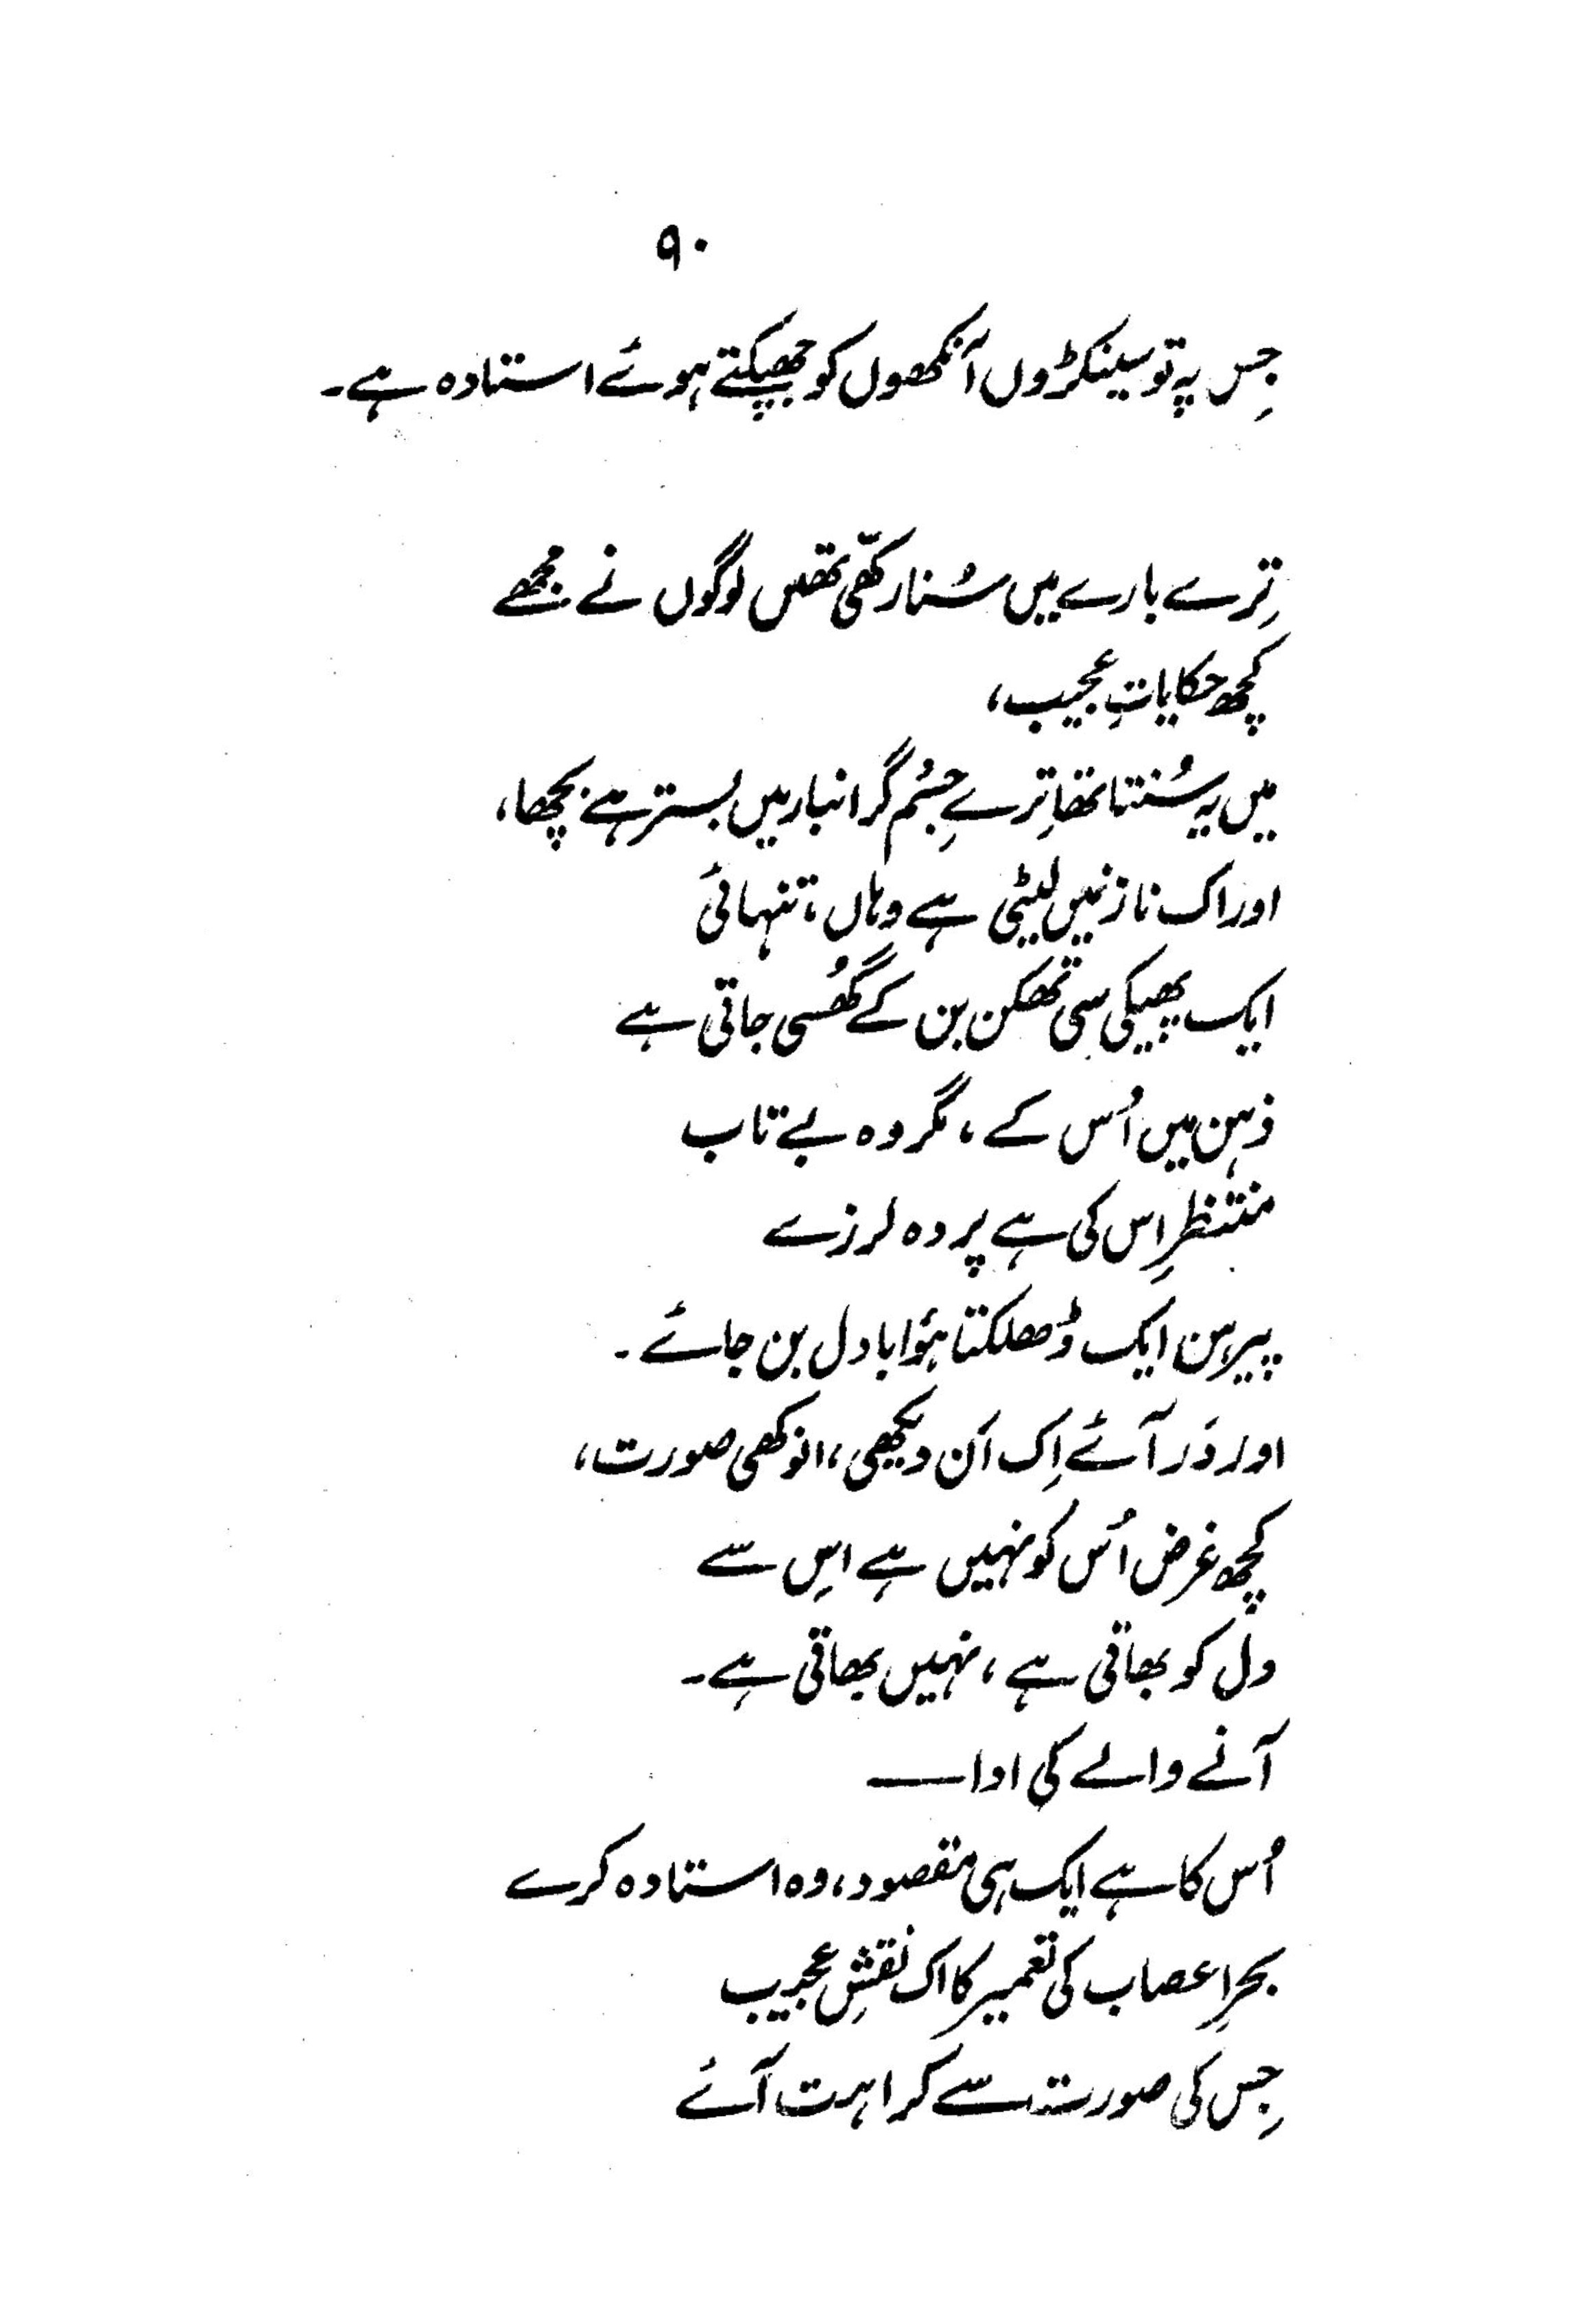 ۹۰
جِس پہ تو سینکڑوں آنکھوں کو جھپکتے ہوئے استادہ ہے۔
تِرے بارے میں سُنا رکھّی تھیں لوگوں نے مجھے
کچھ حکایاتِ عجیب،
میں یہ سُنتا تھا تِرے جِسمِ گرانبار میں بستر ہے بچھا،
اور اک نازنیں لیٹی ہے وہاں، تنہائی
ایک پھیکی سی تھکن بن کے گھُسی جاتی ہے
ذہن میں اُس کے، مگر وہ بے تاب
منتظر اِس کی ہے پردہ لرزے
پیرہن ایک ڈھلکتا ہؤا بادل بن جائے۔
اور دَر آئے اِک اَن دیکھی، انوکھی صورت،
کچھ غرض اُس کو نہیں ہے اِس سے
دل کو بھاتی ہے، نہیں بھاتی ہے۔
آنے والے کی ادا ــــ
اُس کا ہے ایک ہی مقصود، وہ استادہ کرے
بحرِ اعصاب کی تعمیر کا اک نقشِ عجیب
جِس کی صورت سے کراہت آئے